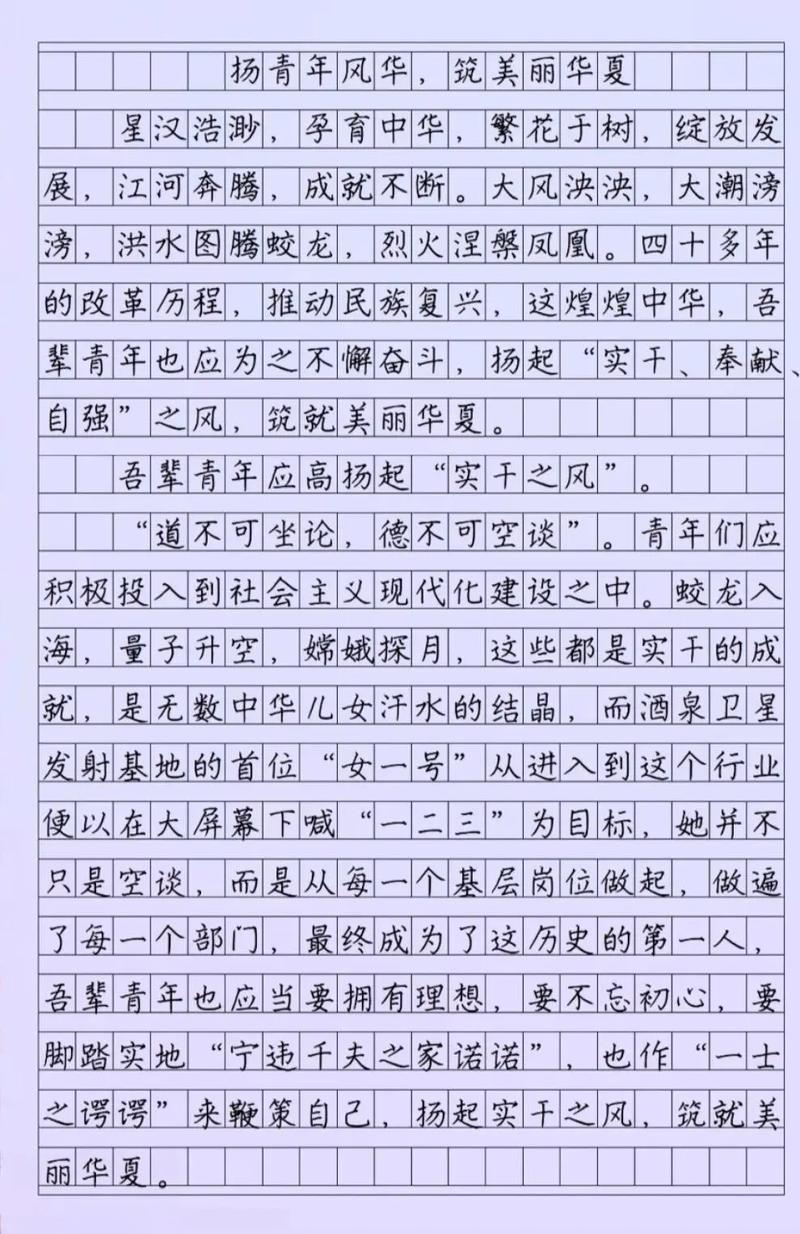 扬青年风华，筑美丽华夏
星汉浩渺，孕育中华，繁花于树，绽放发
展，江河奔腾，成就不断。大风泱泱，大潮滂
滂，洪水图腾蛟龙，烈火涅槃凤凰。四十多年
的改革历程，推动民族复兴，这煌煌中华，吾
辈青年也应为之不懈奋斗，扬起“实干、奉献、
自强”之风，筑就美丽华夏。
吾辈青年应高扬起“实干之风”。
“道不可坐论，德不可空谈”。青年们应
积极投入到社会主义现代化建设之中。蛟龙入
海，量子升空，嫦娥探月，这些都是实干的成
就，是无数中华儿女汗水的结晶，而酒泉卫星
发射基地的首位“女一号”从进入到这个行业
便以在大屏幕下喊“一二三”为目标，她并不
只是空谈，而是从每一个基层岗位做起，做遍
了每一个部门，最终成为了这历史的第一人，
吾辈青年也应当要拥有理想，要不忘初心，要
脚踏实地“宁违千夫之家诺诺”，也作“一士
之谔谔”来鞭策自己，扬起实干之风，筑就美
丽华夏。